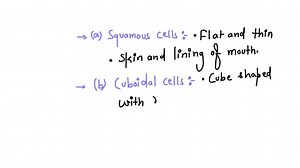 → (a) Squamous cells :- • Flat and thin
• Skin and lining of mouth.
→ (b) Cuboidal cells :- • Cube shaped
with )